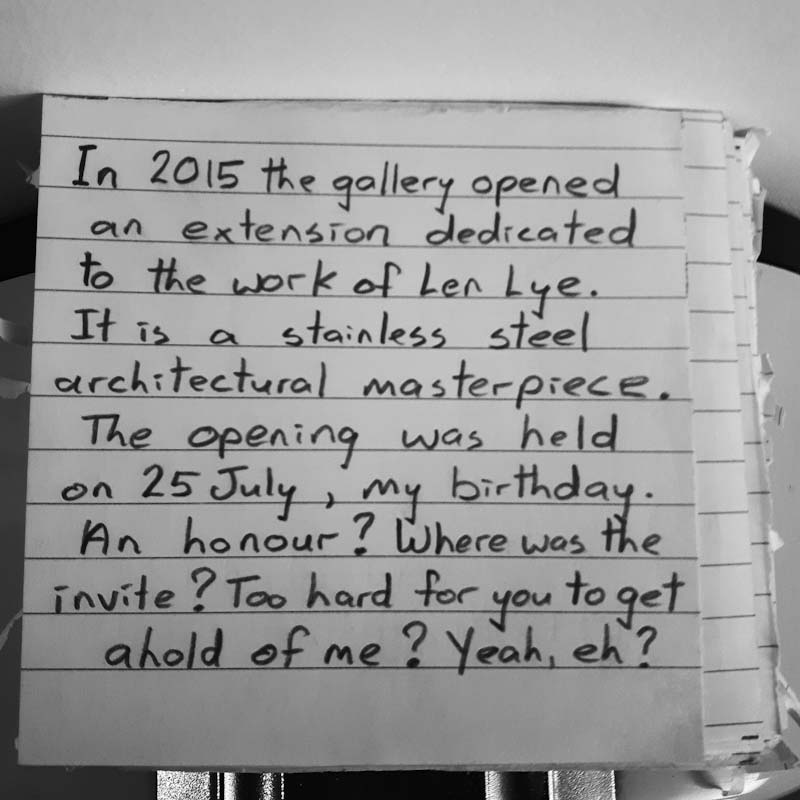 In 2015 the gallery opened
an extension dedicated
to the work of Len Lye.
It is a stainless steel
architectural masterpiece.
The opening was held
on 25 July, my birthday.
An honour? Where was the
invite? Too hard for you to get
ahold of me? Yeah, eh?